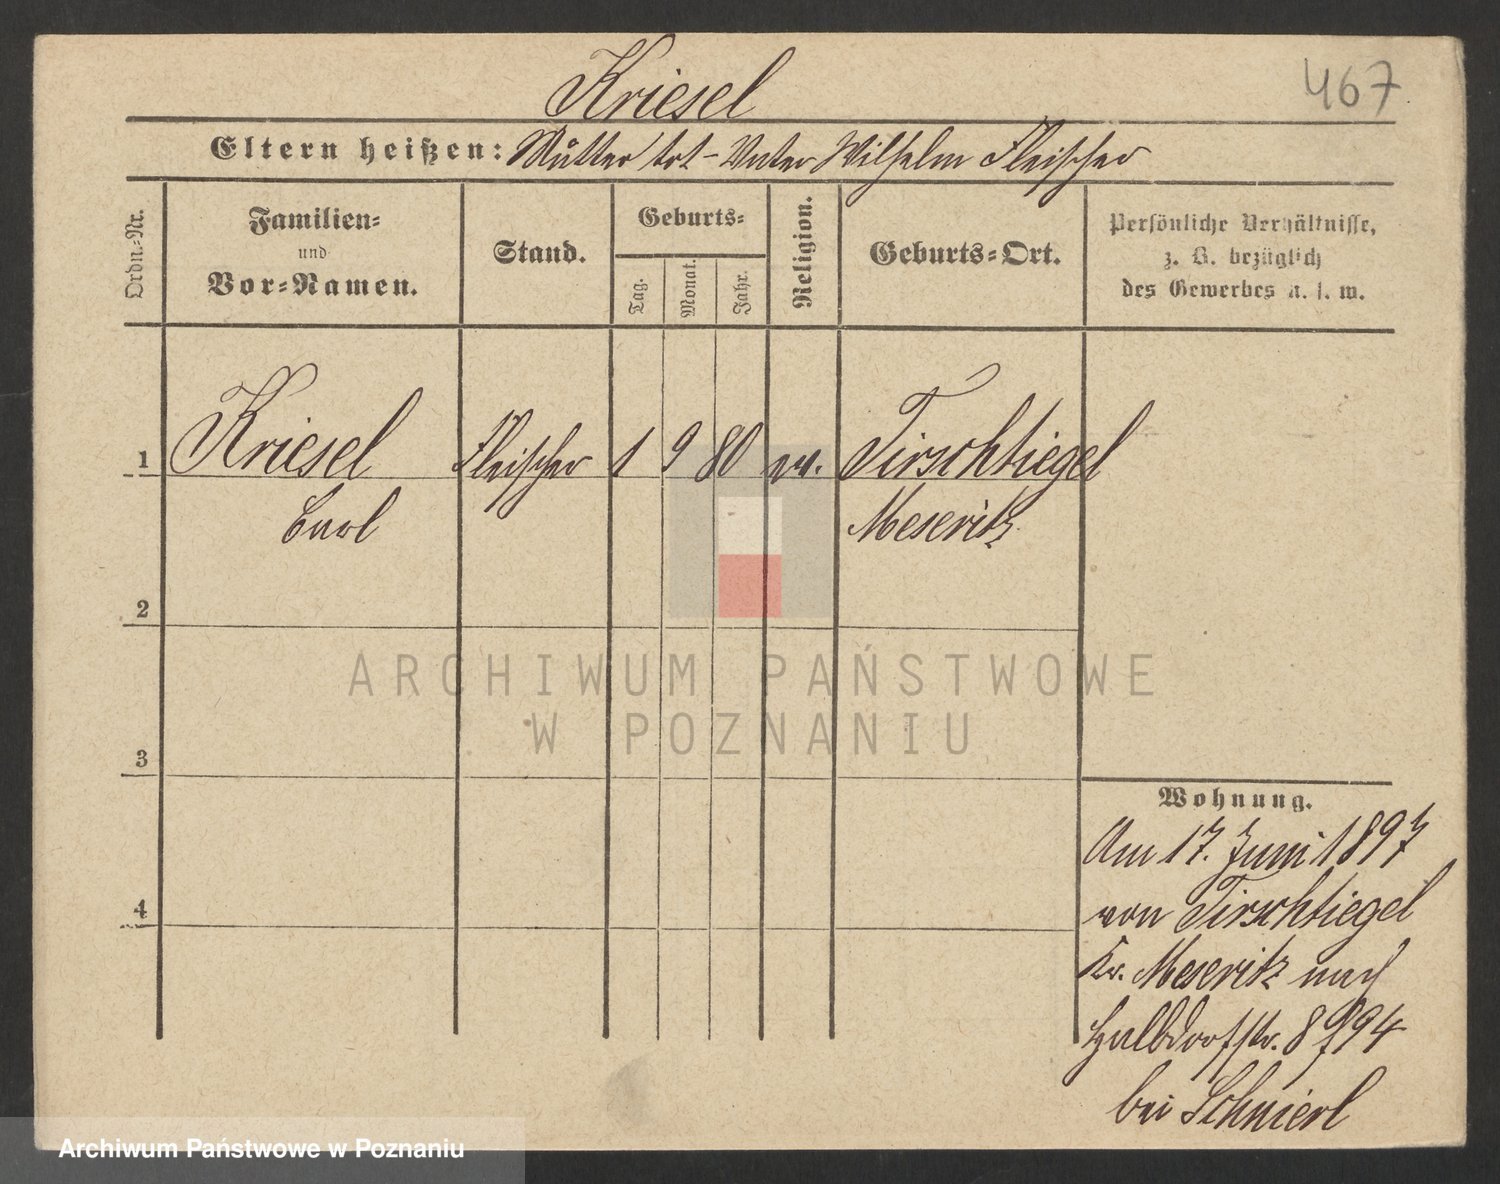 467
Kriesel
Eltern heißen: Mutter tot - Vater Wilhelm Fleischer
Ordn.=Nr.
Familien=
und
Vor=Namen.
Stand.
Geburts=
Tag.
Monat.
Jahr.
Religion.
Geburts=Ort.
Persönliche Verhältnisse,
z. B. bezüglich
des Gewerbes u. s. w.
1 Kriesel Fleischer 1 9 80 ev. Tirschtiegel
Carl Meseritz
2
3
4
Wohnung.
Am 17. Juni 1897
von Tirschtiegel
Kr. Meseritz nach
Halbdorfstr. 8
bei
ARCHIWUM PAŃSTWOWE
W POZNANIU
Archiwum Państwowe w Poznaniu